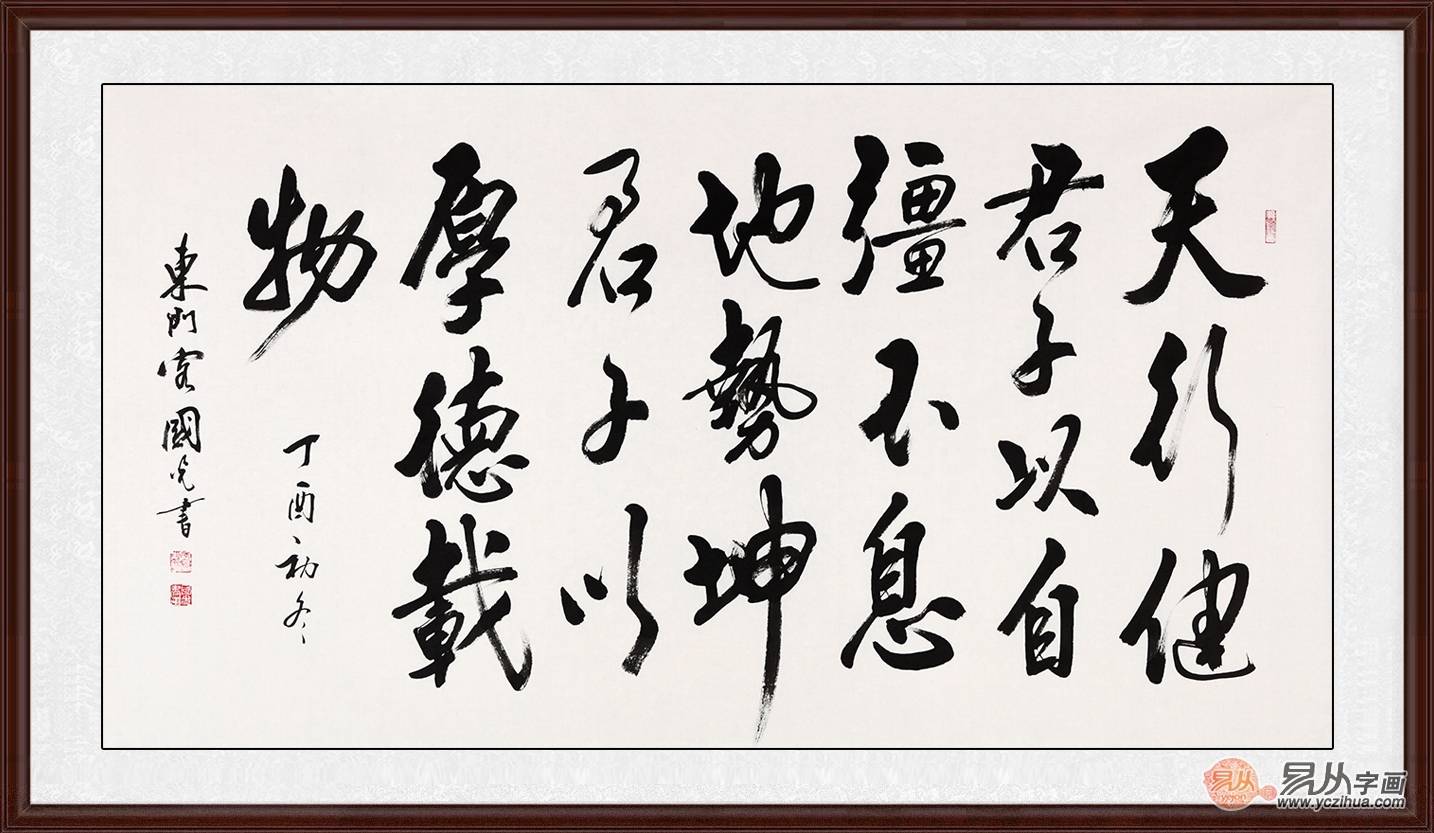 天行健
君子以自
彊不息
地勢坤
君子以
厚德載
物
丁酉初冬
東門客國光書
易从
yczihua
易从字画
www.yczihua.com